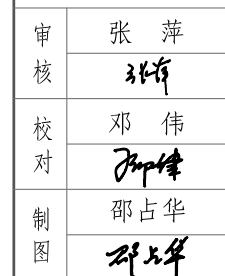 审核 张萍
张萍
校对 邓伟
邓伟
制图 邵占华
邵占华